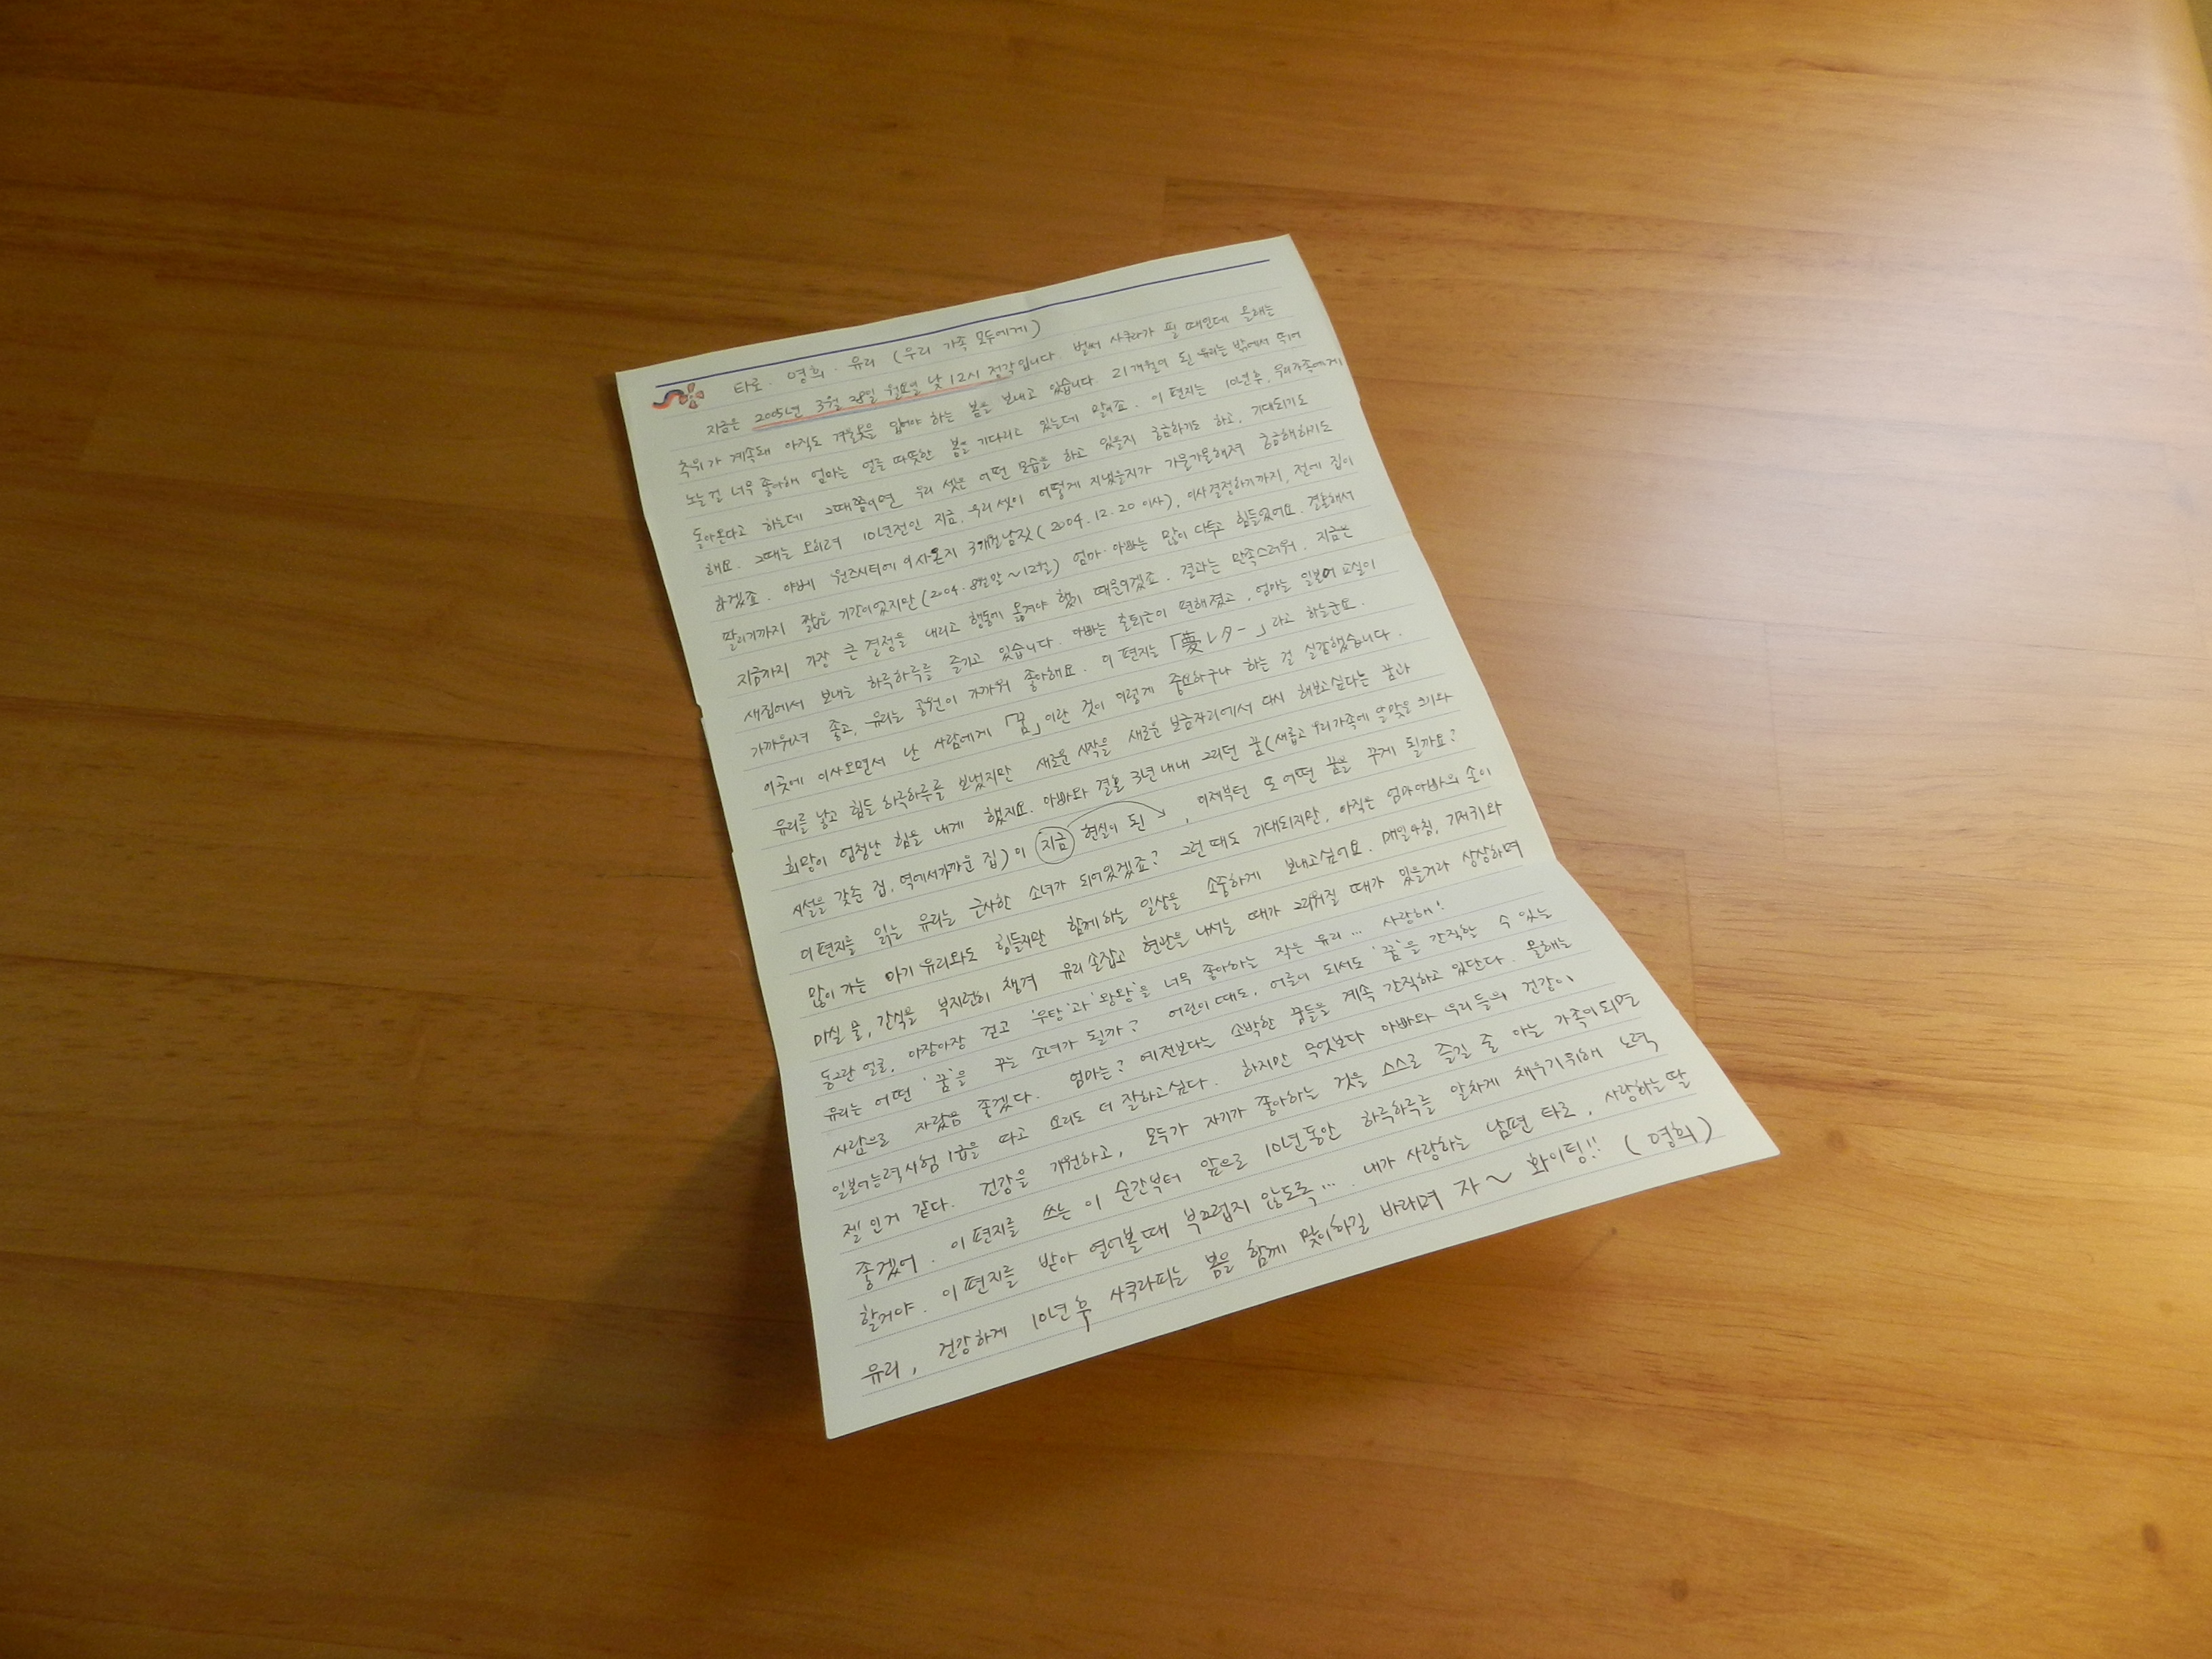 타로·영희·유리 (우리 가족 모두에게)
지금은 2005년 3월 28일 월요일 낮 12시 정각입니다. 벌써 사쿠라가 필 때인데 올해는
추위가 계속돼 아직도 겨울옷을 입어야 하는 봄을 보내고 있습니다. 21개월이 된 유리는 밖에서 뛰어
노는걸 너무 좋아해 엄마는 얼른 따뜻한 봄을 기다리고 있는데 말이죠. 이 편지는 10년후, 우리가족에게
돌아온다고 하는데 그때쯤이면 우리 셋은 어떤 모습을 하고 있을지 궁금하기도 하고, 기대되기도
해요. 그때는 오히려 10년전인 지금, 우리 셋이 어떻게 지냈을지가 가물가물해져 궁금해하기도
하겠죠. 야베 원즈시티에 이사온지 3개월남짓 (2004. 12. 20 이사), 이사결정하기까지, 전에 집이
팔리기까지 짧은 기간이었지만 (2004. 8월말~12월) 엄마·아빠는 많이 다투고 힘들었어요. 결혼해서
지금까지 가장 큰 결정을 내리고 행동에 옮겨야 했기 때문이겠죠. 결과는 만족스러워. 지금은
새집에서 보내는 하루하루를 즐기고 있습니다. 아빠는 출퇴근이 편해졌고, 엄마는 일본어 교실이
가까워져 좋고, 유리는 공원이 가까워 좋아해요. 이 편지는 「夢レター」라고 하는군요.
이곳에 이사오면서 난 사람에게 「꿈」이란 것이 이렇게 중요하구나 하는 걸 실감했습니다.
유리를 낳고 힘든 하루하루를 보냈지만 새로운 시작을 새로운 보금자리에서 다시 해보고싶다는 꿈과
희망이 엄청난 힘을 내게 했지요. 아빠와 결혼 3년내내 그리던 꿈 (새롭고 우리가족에 알맞은 크기와
시설을 갖춘 집, 역에서가까운 집)이 지금 현실이 된, 이제부턴 또 어떤 꿈을 꾸게 될까요?
이편지를 읽는 유리는 근사한 소녀가 되어있겠죠? 그런 때도 기대되지만, 아직은 엄마아빠의 손이
많이 가는 아기 유리와도 힘들지만 함께하는 일상을 소중하게 보내고싶어요. 매일아침, 기저귀와
마실 물, 간식을 부지런히 챙겨 유리 손잡고 현관을 나서는 때가 그리워질 때가 있을거라 상상하며
동그란 얼굴, 아장아장 걷고 '우탕'과 '왕왕'을 너무 좋아하는 작은 유리… 사랑해!
유리는 어떤 '꿈'을 꾸는 소녀가 될까? 어린이 때도, 어른이 되서도 '꿈'을 간직할 수 있는
사람으로 자랐음 좋겠다. 엄마는? 예전보다는 소박한 꿈들을 계속 간직하고 있단다. 올해는
일본어능력시험 1급을 따고 요리도 더 잘하고싶다. 하지만 무엇보다 아빠와 우리들의 건강이
젤 인거 같다. 건강을 기원하고, 모두가 자기가 좋아하는 것을 스스로 즐길 줄 아는 가족이되면
좋겠어. 이 편지를 쓰는 이 순간부터 앞으로 10년동안 하루하루를 알차게 채우기위해 노력
할거야. 이 편지를 받아 열어볼 때 부끄럽지 않도록…. 내가 사랑하는 남편 타로, 사랑하는 딸
유리, 건강하게 10년후 사쿠라피는 봄을 함께 맞이하길 바라며 자~ 화이팅!! (영희)